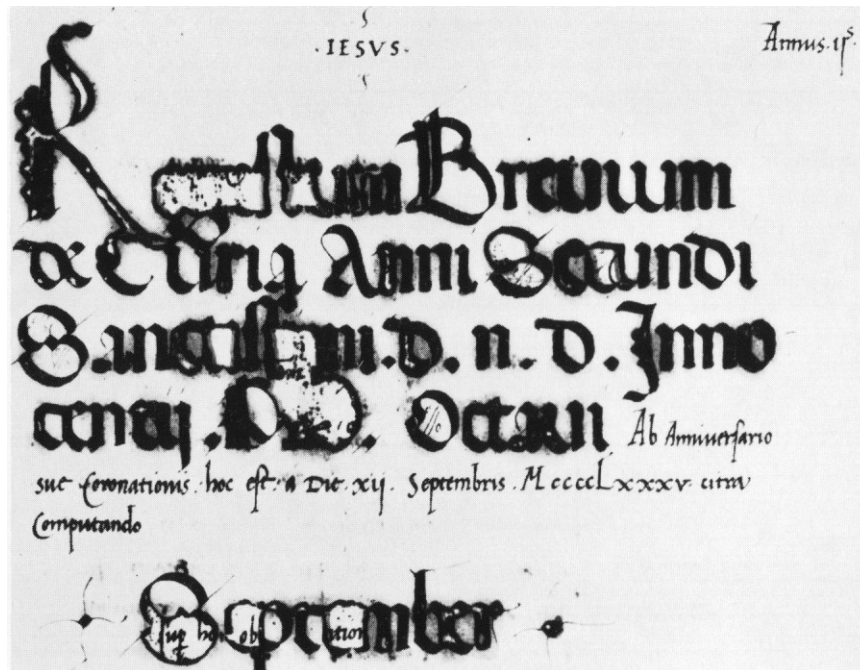 ·IESVS·
Annus·ijs·
Registrum Brevium
de Curia Anni Secundi
Sanctissimi·D·n·D·Inno
centij·PP· Octavi Ab Anniversario
sue Coronationis·hoc est·a Die·xij· Septembris·MccccLxxxv·citra
Computando
September